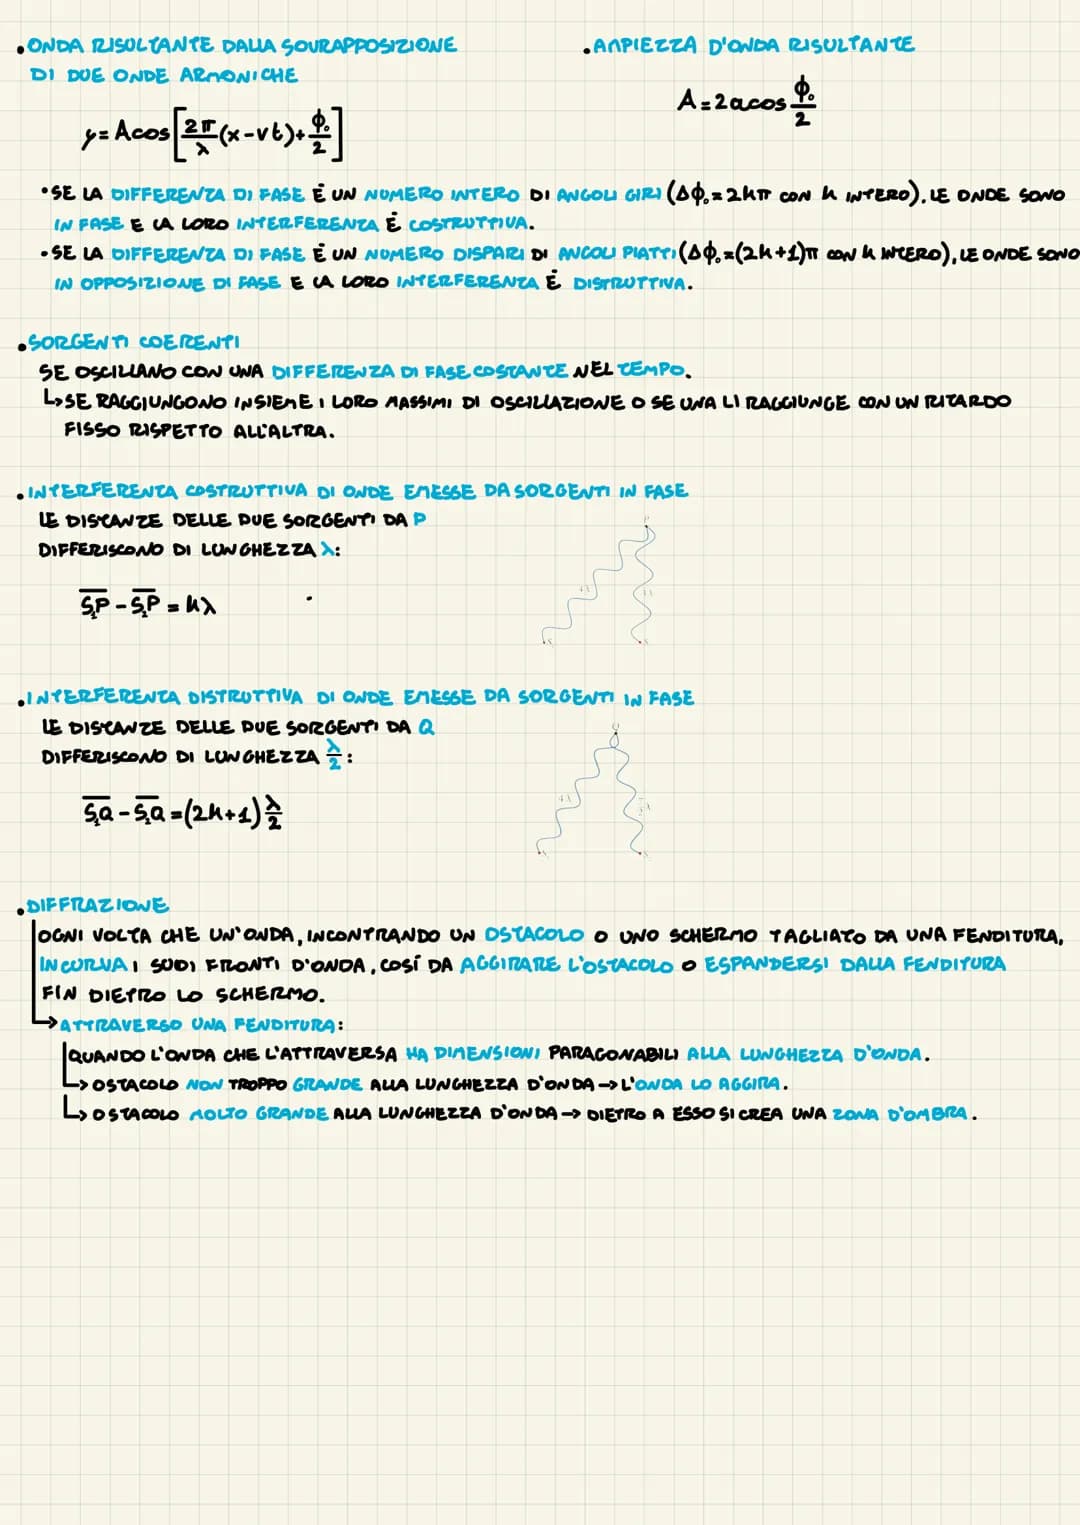 .ONDA RISULTANTE DALLA SOVRAPPOSIZIONE
DI DUE ONDE ARMONICHE
y=Acos[2π/λ(x-vt)+ϕ₀/2]
.AMPIEZZA D'ONDA RISULTANTE
A=2acos ϕ₀/2
•SE LA DIFFERENZA DI FASE É UN NUMERO INTERO DI ANGOLI GIRI (Δϕ₀=2kπ CON k INTERO), LE ONDE SONO
IN FASE E LA LORO INTERFERENZA É COSTRUTTIVA.
•SE LA DIFFERENZA DI FASE É UN NUMERO DISPARI DI ANGOLI PIATTI (Δϕ₀=(2k+1)π CON k INTERO), LE ONDE SONO
IN OPPOSIZIONE DI FASE E LA LORO INTERFERENZA É DISTRUTTIVA.
.SORGENTI COERENTI
SE OSCILLANO CON UNA DIFFERENZA DI FASE COSTANTE NEL TEMPO.
↳SE RAGGIUNGONO INSIEME I LORO MASSIMI DI OSCILLAZIONE O SE UNA LI RAGGIUNGE CON UN RITARDO
FISSO RISPETTO ALL'ALTRA.
.INTERFERENZA COSTRUTTIVA DI ONDE EMESSE DA SORGENTI IN FASE
LE DISTANZE DELLE DUE SORGENTI DA P
DIFFERISCONO DI LUNGHEZZA λ:
S₁P-S₂P=kλ
P
4λ
S
S
.INTERFERENZA DISTRUTTIVA DI ONDE EMESSE DA SORGENTI IN FASE
LE DISTANZE DELLE DUE SORGENTI DA Q
DIFFERISCONO DI LUNGHEZZA λ/2:
S₁Q-S₂Q=(2k+1)λ/2
Q
4λ
S
S
.DIFFRAZIONE
OGNI VOLTA CHE UN'ONDA, INCONTRANDO UN OSTACOLO O UNO SCHERMO TAGLIATO DA UNA FENDITURA,
INCURVA I SUOI FRONTI D'ONDA, COSÍ DA AGGIRARE L'OSTACOLO O ESPANDERSI DALLA FENDITURA
FIN DIETRO LO SCHERMO.
→ATTRAVERSO UNA FENDITURA:
QUANDO L'ONDA CHE L'ATTRAVERSA HA DIMENSIONI PARAGONABILI ALLA LUNGHEZZA D'ONDA.
↳OSTACOLO NON TROPPO GRANDE ALLA LUNGHEZZA D'ONDA→L'ONDA LO AGGIRA.
↳OSTACOLO MOLTO GRANDE ALLA LUNGHEZZA D'ONDA→DIETRO A ESSO SI CREA UNA ZONA D'OMBRA.